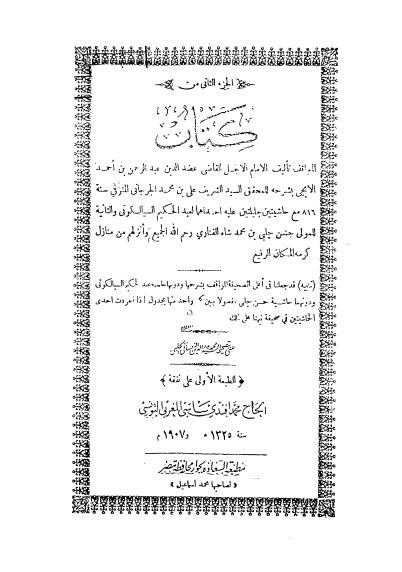 الجزء الثاني من
كتاب
المواقف تأليف الامام الاجل القاضي عضد الدين عبد الرحمن بن أحمد
الايجي بشرحه للمحقق السيد الشريف علي بن محمد الجرجاني المتوفى سنة
٨١٦ مع حاشيتين جليلتين عليه احداهما لعبد الحكيم السيالكوتي والثانية
للمولى حسن جلبي بن محمد شاه الفناري رحم الله الجميع وأنزلهم من منازل
كرمه المكان الرفيع
(تنبيه) قد جعلنا في أعلى الصحيفة المواقف بشرحها ودونها حاشية عبد الحكيم السيالكوتي
ودونهما حاشية حسن جلبي مفصولا بين كل واحد منها بجدول اذا انفردت احدى
الحاشيتين في صحيفة نبهنا على ذلك
عني بتصحيحه السيد محمد بدر الدين النعساني الحلبي
﴿ الطبعة الأولى على نفقة ﴾
الحاج محمد افندي ساسي المغربي التونسي
سنة ١٣٢٥ هـ و ١٩٠٧ م
مطبعة السعادة بجوار محافظة مصر
« لصاحبها محمد اسماعيل »